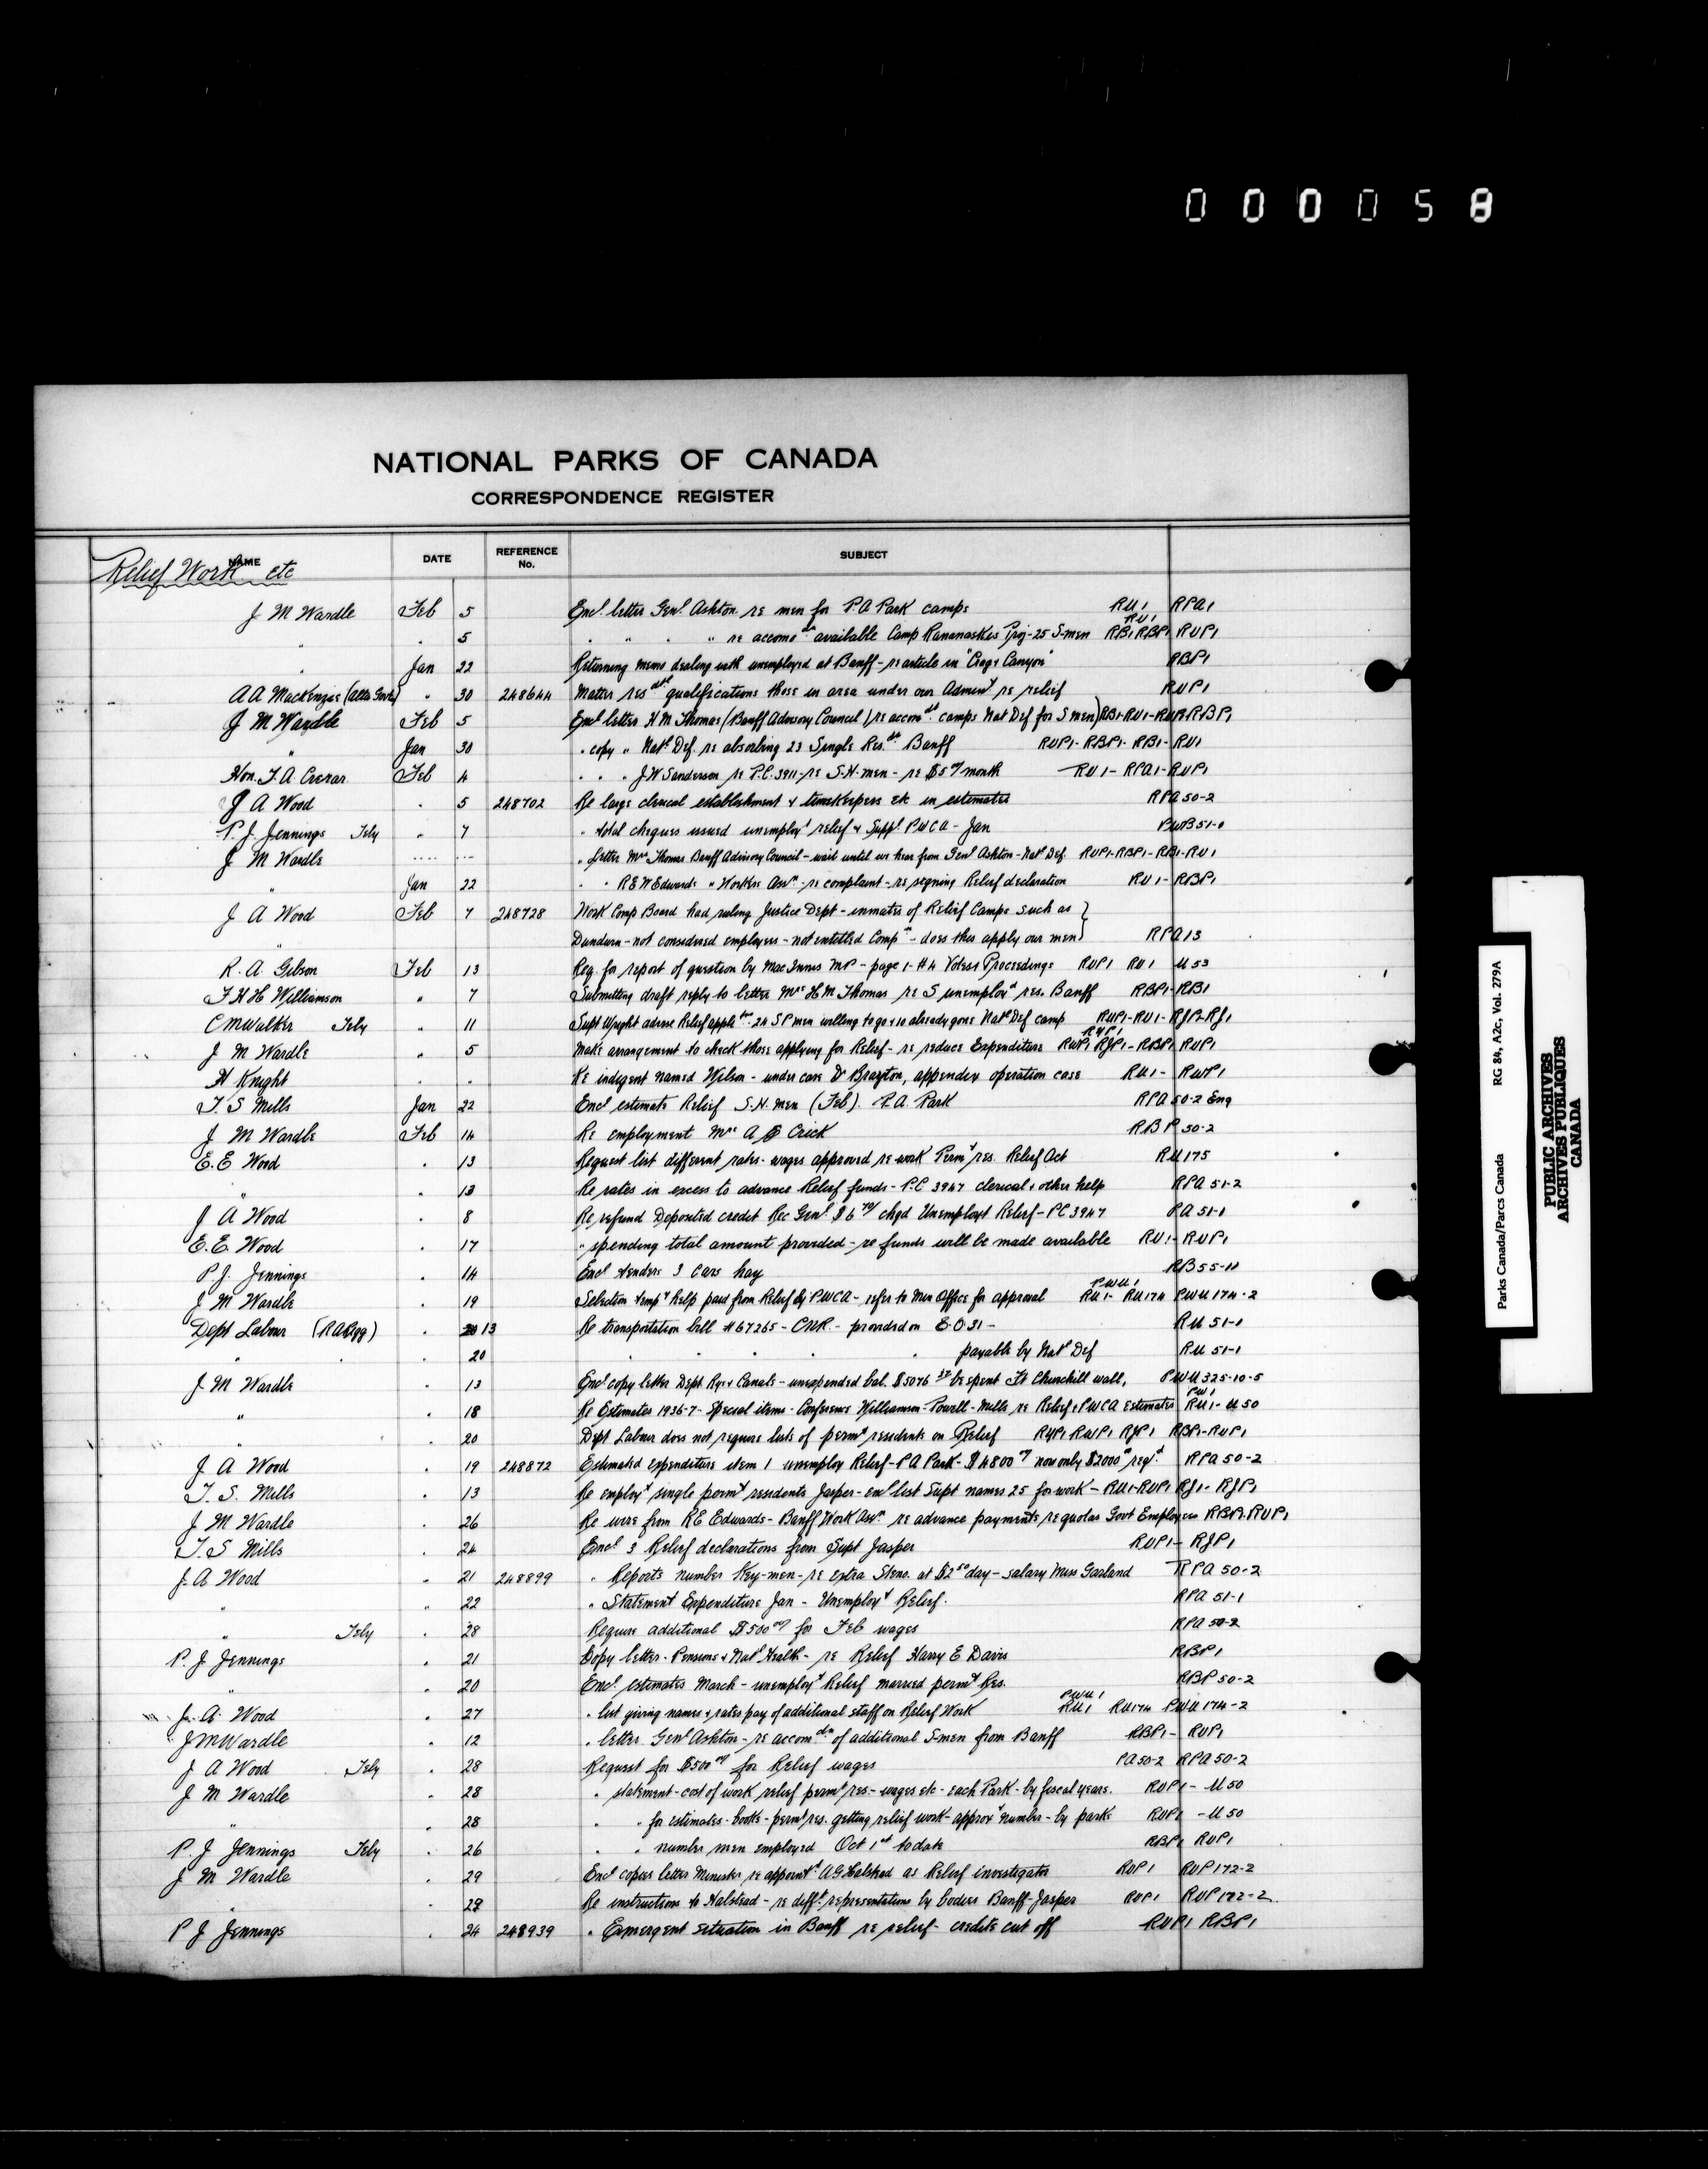 000058
NATIONAL PARKS OF CANADA
CORRESPONDENCE REGISTER
NAME DATE REFERENCE No. SUBJECT
Relief Work etc
J M Wardle Feb 5 Encl letter Genl Ashton re men for P A Park camps RU1 RPA1
" . 5 . " . " re accomodn available Camp Kananaskis Proj - 25 S-men RU1 RB1 RBP1 RUP1
" Jan 22 Returning memo dealing with unemployed at Banff - re article in "Crag & Canyon" RBP1
A A MacKenzie (Alta Govt) " 30 248644 Matter res qualifications those in area under our Admint re relief RUP1
J M Wardle Feb 5 Encl letter H M Thomas (Banff Advisory Council) re accomdn camps Natl Def for S men) RB1-RU1-RUP1-RBP1
" Jan 30 . copy " Natl Def. re absorbing 23 Single Res. Banff RUP1-RBP1-RB1-RU1
Hon. T. A. Crerar Feb 4 . . . J W Sanderson re P.C. 3911 - re S.H. men - re $5 / month RU1-RPA1-RUP1
J A Wood . 5 248702 Re large clerical establishment & timekeepers etc in estimates RPA 50-2
P. J. Jennings Tely " 7 . total cheques issued unemployt relief & Suppl PWCA - Jan
J M Wardle .... ... . Letter Mrs Thomas Banff Advisory Council - wait until we hear from Genl Ashton - Natl Def. RUP1-RBP1-RB1-RU1
" Jan 22 . . R E W Edwards " Workers Assn - re complaint - re signing Relief declaration RU1-RBP1
J A Wood Feb 7 248728 Work Comp Board had ruling Justice Dept - inmates of Relief Camps such as }
" Dundurn - not considered employees - not entitled Compn - does this apply our men} RPA13
R. A. Gibson Feb 13 Req. for report of question by MacInnis MP - page 1 - #4 Votes & Proceedings RUP1 RU1 U53
F H H Williamson " 7 Submitting draft reply to letter Mrs H M Thomas re S unemployd res. Banff RBP1-RB1
C M Walker Tely " 11 Supt Wright advise Relief applic 24 SP men willing to go & 10 already gone Natl Def camp RUP1-RU1-RJP1-RJ1
J M Wardle " 5 Make arrangement to check those applying for Relief - re reduce Expenditure RYP1 RWP1 RJP1-RBP1 RUP1
H Knight . . Re indigent named Wilson - under care Dr Brayton, appendix operation case RU1- RWP1
T. S Mills Jan 22 Encl estimate Relief S.H. men (Feb). P.A. Park RPA 50-2 Eng
J M Wardle Feb 14 Re employment Mrs A Crick RBP 50-2
E. E Wood . 13 Request list different rates - wages approved re work Permt res. Relief Act RU175
" . 13 Re rates in excess to advance Relief funds - P.C 3947 clerical & other help RPA 51-2
J A Wood . 8 Re refund Deposited credit Rec Genl $6 chgd Unemployt Relief - PC 3947 PA 51-1
E. E. Wood . 17 " spending total amount provided - re funds will be made available RU1-RUP1
P. J. Jennings . 14 Encl tenders 3 cars hay RB55-11
J M Wardle . 19 Selection tempy help paid from Relief & PWCA - refer to Min Office for approval PWU1 RU1- RU174 PWU174-2
Dept Labour (R A Rigg) . 13 Re transportation bill #67265 - CNR - provided on E.O.31 - RU 51-1
" . . 20 . . . . . payable by Natl Def RU 51-1
J. M Wardle . 13 Encl copy letter Dept Rys & Canals - unexpended bal. $5076 be spent Ft Churchill wall, PWU325-10-5
" . 18 Re Estimates 1936-7 - Special items - Conference Williamson - Powell - Mills re Relief & PWCA Estimates PW1 RU1-U50
" . 20 Dept Labour does not require lists of permt residents on Relief RYP1 RWP1 RJP1 RBP1-RUP1
J A Wood . 19 248872 Estimated expenditure item 1 unemploy Relief - PA Park - $4800 now only $2000 reqd. RPA 50-2
T. S. Mills . 13 Re employt single permt residents Jasper - encl list Supt names 25 for work - RU1-RUP1 RJ1-RJP1
J M Wardle . 26 Re wire from RE Edwards - Banff Work Assn re advance payments re quotas Govt Employees RBP1-RUP1
T. S Mills . 24 Encl 3 Relief declarations from Supt Jasper RUP1-RJP1
J. A Wood . 21 248899 . Reports number Key-men - re extra Steno. at $2.50 day - salary Miss Garland RPA 50-2
" " 22 . Statement Expenditure Jan - Unemployt Relief. RPA 51-1
" Tely . 28 Require additional $500 for Feb wages RPA 50-2
P. J Jennings . 21 Copy letter - Pensions & Natl Health - re Relief Harry E Davis RBP1
" . 20 Encl estimates March - unemployt Relief married permt Res. RBP 50-2
J. A. Wood . 27 . list giving names & rates pay of additional staff on Relief Work PWU1 RU1 RU174 PWU174-2
J M Wardle . 12 . letter Genl Ashton - re accomdn of additional S-men from Banff RBP1- RUP1
J A Wood Tely . 28 Request for $500 for Relief wages PA 50-2 RPA 50-2
J M Wardle . 28 . statement - cost of work relief permt res. - wages etc - each Park - by fiscal years. RUP1- U50
" . 28 . . for estimates - books - permt res. getting relief work - approxt number - by parks RUP1 -U50
P. J Jennings Tely . 26 . " number men employed Oct 1st to date RBP1 RUP1
J M Wardle . 29 Encl copies letter Minister re appointt A G Halstead as Relief investigator RUP1 RUP172-2
" . 29 Re instructions to Halstead - re difft representations by bodies Banff-Jasper RUP1 RUP172-2
P J Jennings . 24 248939 . Emergent situation in Banff re relief - credits cut off RUP1 RBP1
Parks Canada/Parcs Canada RG 84, A2c, Vol. 279A
PUBLIC ARCHIVES
ARCHIVES PUBLIQUES
CANADA